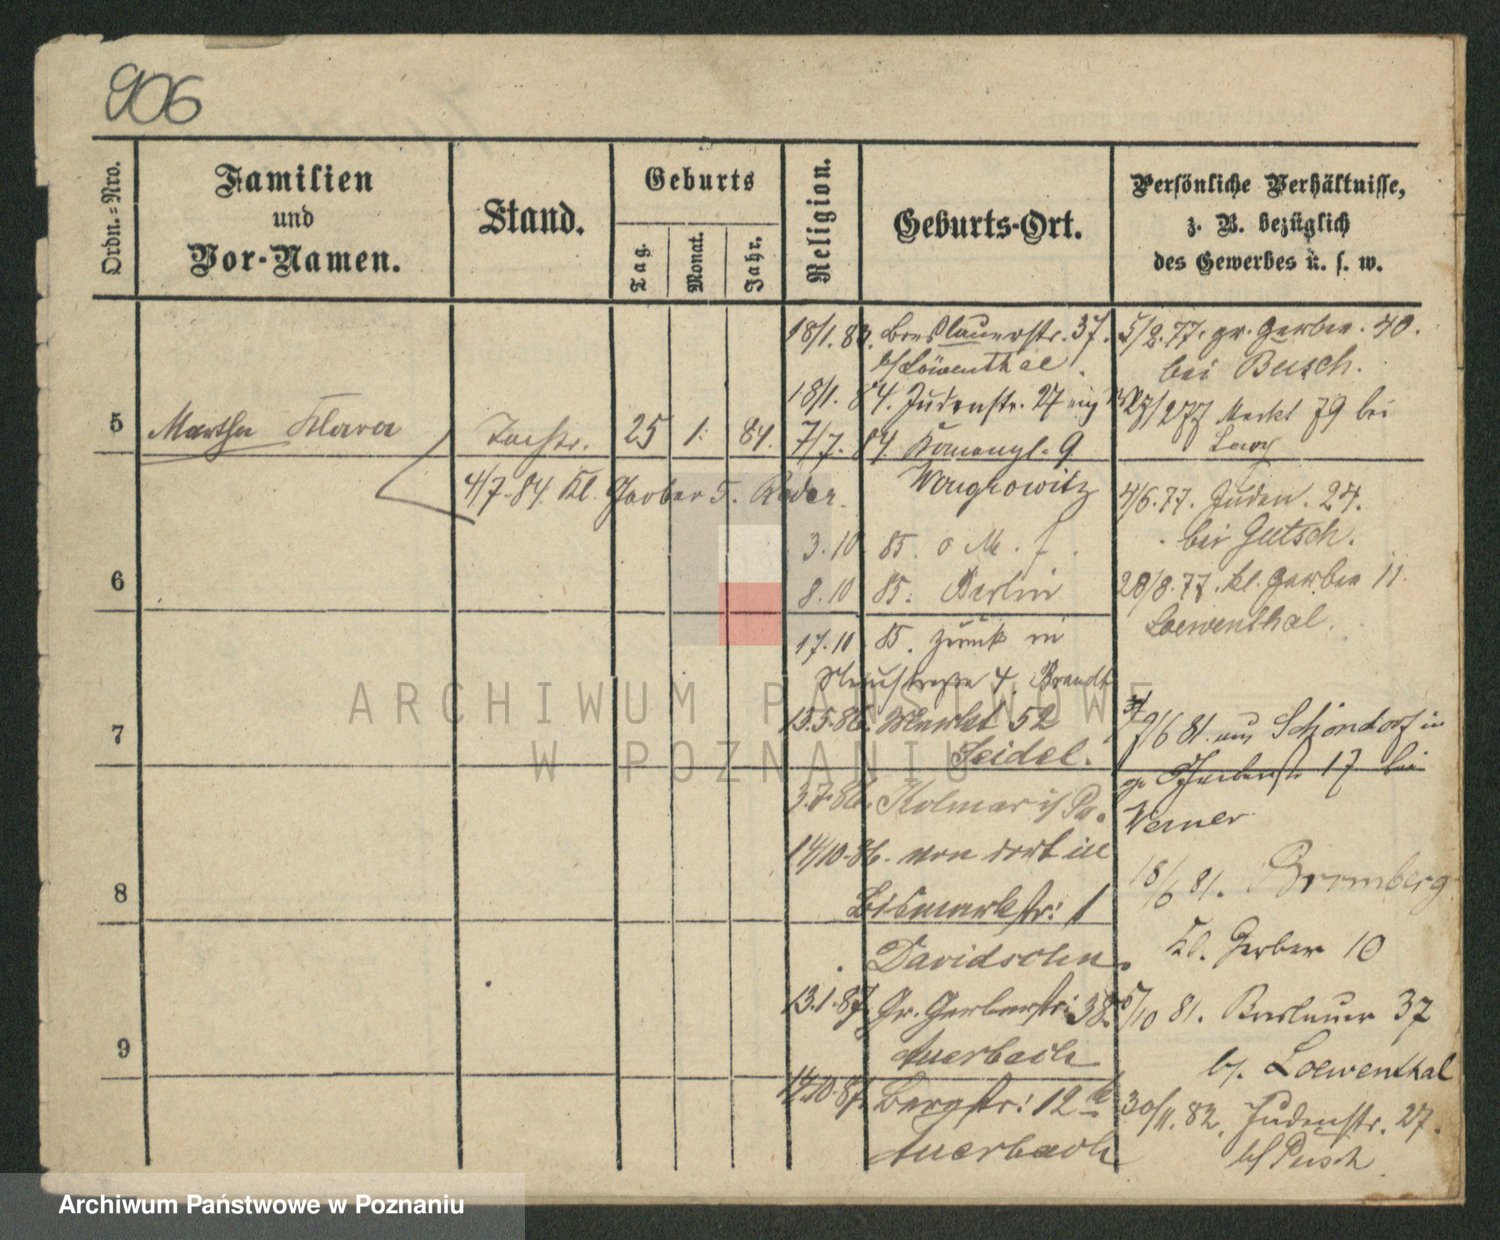 906
Ordn.=Nro.
Familien
und
Vor-Namen.
Stand.
Geburts
Tag.
Monat.
Jahr.
Religion.
Geburts-Ort.
Persönliche Verhältnisse,
z. B. bezüglich
des Gewerbes u. s. w.
5
Martha Klara
Tochtr.
25
1.
84.
4/7. 84. Kl. Gerber 5.
18/1. 83. Breslauerstr. 37.
b/Löwenthal.
18/1. 84. Judenstr. 27
7/7. 84.
Wongrowitz
3. 10 85. o M.
8. 10 85. Berlin
17. 10 85. zurück in
4. Brandt
13.5.86. Markt 52
Seidel.
3.7.86. Kolmar i/ Po.
14/10.86. von dort in
Bismarkstr: 1
Davidsohn.
13.1.87. Gr. Gerberstr: 38.
Auerbach
14.10.87. Bergstr: 12
Auerbach
5/2. 77. gr. Gerber. 40.
bei Busch.
27/2 77 Markt 79 bei
Levy
4/6. 77. Juden. 27.
bei Gutsch.
28/8. 77. kl. Gerber 11.
Loewenthal.
9/6 81. aus Schondorf in
gr Gerberstr 17 bei
Werner
18/6 81. Bromberg
Kl. Gerber 10
5/10 81. Breslauer 37
b/. Loewenthal
30/11. 82. Judenstr. 27.
b/ Pusch
6
7
8
9
ARCHIWUM PAŃSTWOWE
W POZNANIU
Archiwum Państwowe w Poznaniu